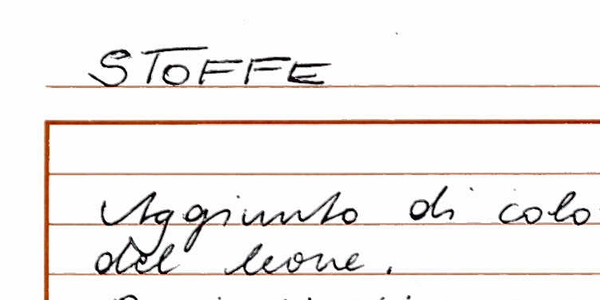 STOFFE
Aggiunto di colo
del leone.